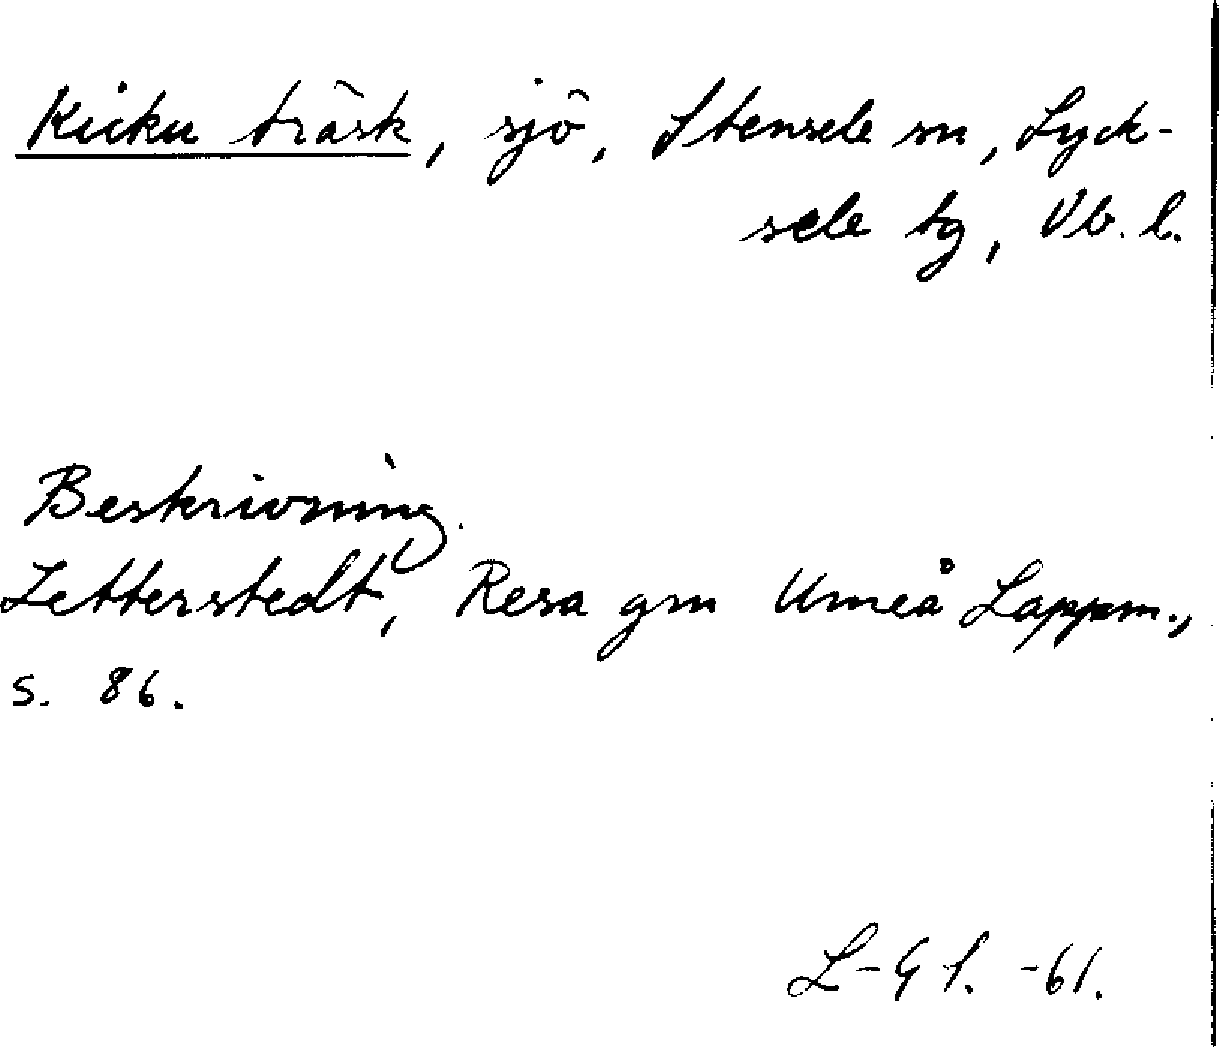 Kicku träsk, sjö, Stensele sn, Lyck-
sele tg, Vb. l.
Beskrivning.
Zetterstedt, Resa gm Umeå Lappm.,
s. 86.
L-G S. -61.